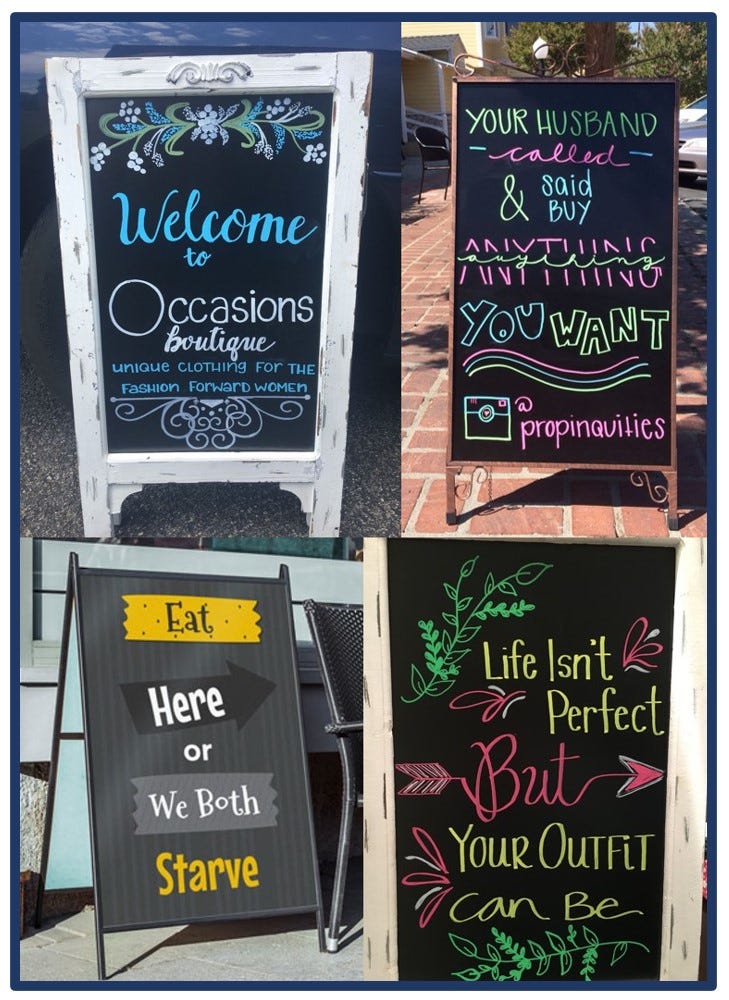 Welcome
to
Occasions
boutique
unique clothing for the
fashion forward women
YOUR HUSBAND
called
& said
BUY
ANYTHING
anything
YOU WANT
@
propinquities
Eat
Here
or
We Both
Starve
Life Isn't
Perfect
But
YOUR OUTFIT
can Be